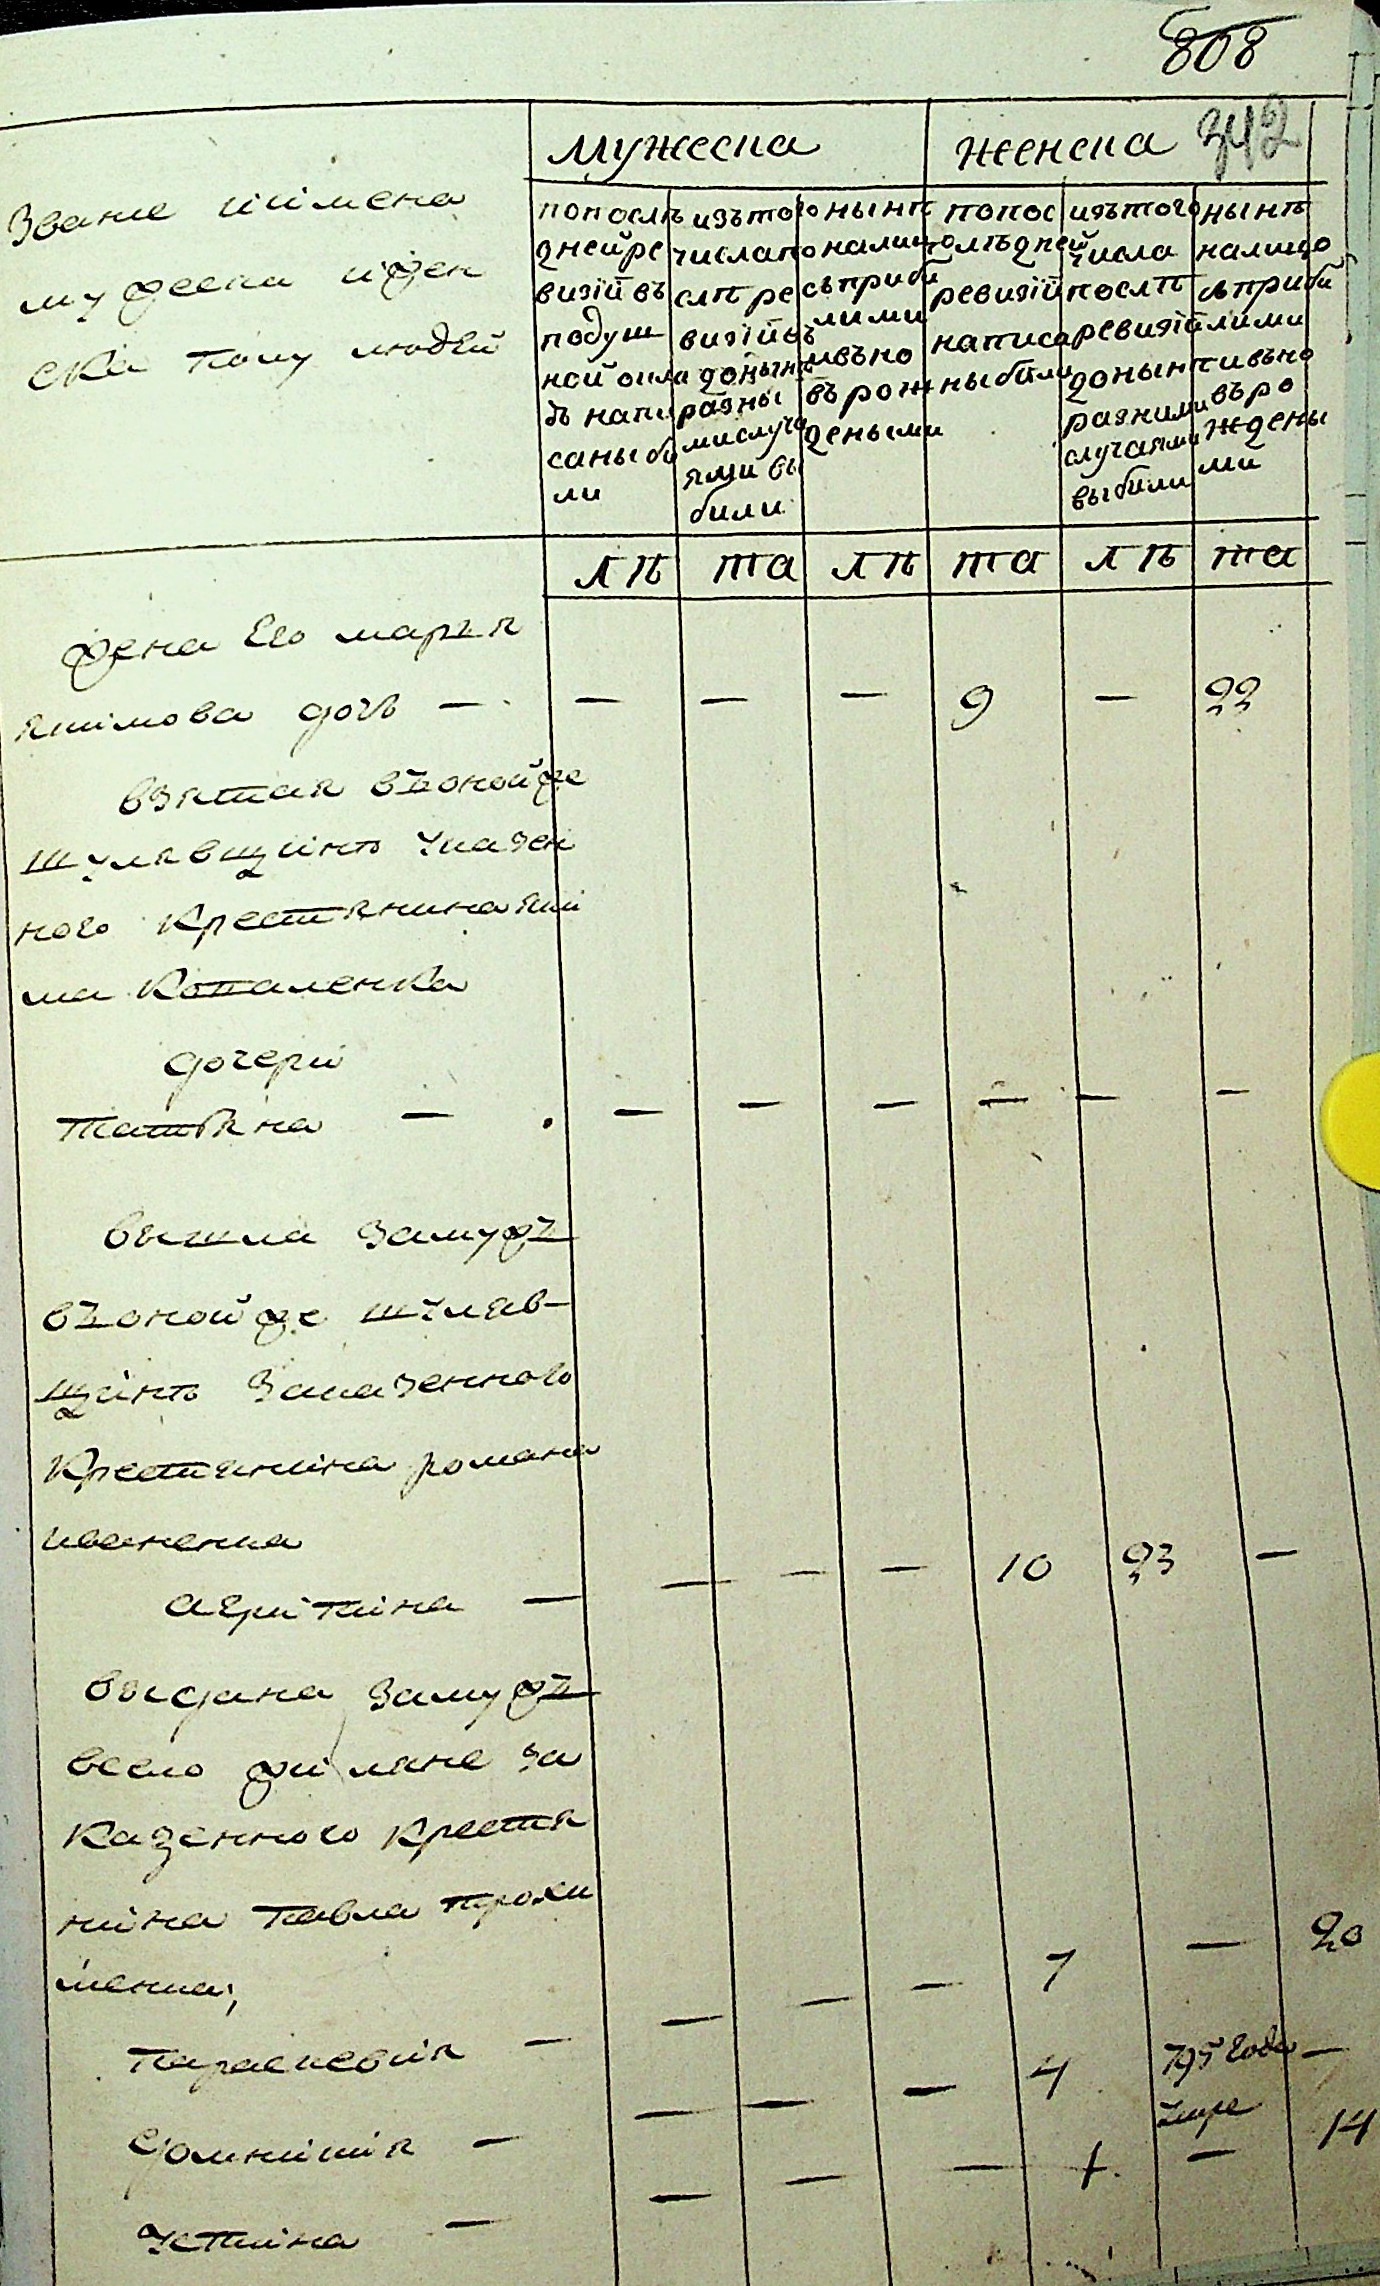 808
342
мужеска
женска
Звание иимена
мужеска ижен
ска полу людей
попослѣ
дней ре
визій въ
подуш
ной окла
дѣ напи
саны бы
ли
изъ того
числа по
слѣ ре
визій
донынѣ
разны
ми случа
ями вы
были
нынѣ
налицо
съ прибы
лыми
ивъно
въ рож
деными
попос
лѣдней
ревизій
написа
ны были
изъ того
числа
послѣ
ревизій
донынѣ
разными
случаями
выбыли
нынѣ
налицо
съ прибы
лыми
ивъно
въ ро
ждены
ми
лѣ та лѣ та лѣ та
жена Его марья
якимова дочь — — — — 9 — 22
взятая въоной же
шулявщинѣ указен
ного крестьянина яки
ма Коваленка
дочери
татьяна — — — — — — —
вышла замужъ
въоной же шуляв-
щинѣ заказенного
крестьянина романа
иваненка
агрипина — — — — 10 23 —
выдана замужъ
всело жиляне за
казенного крестья
нина павла трохи
менка;
параскевия — — — — 7 — 20
домникия — — — — 4 795 года —
умре
устина — — — — 1 — 14